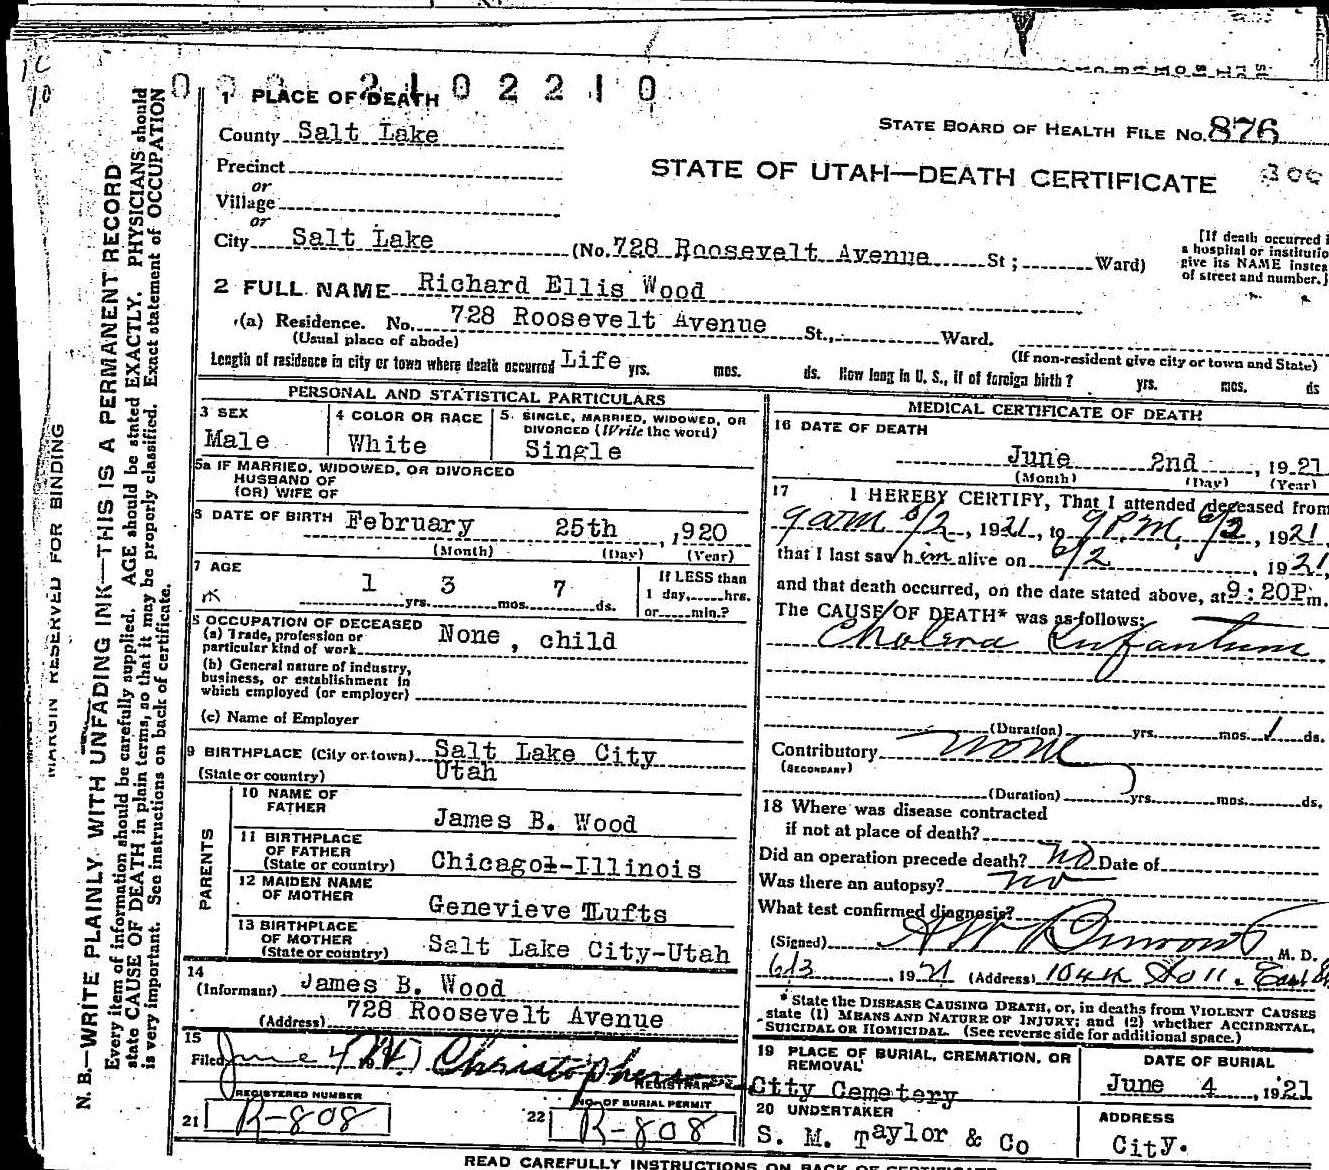 0 0 2 2 1 0 2 2 1 0
1 PLACE OF DEATH
County Salt Lake
STATE BOARD OF HEALTH FILE NO. 876
Precinct
or
STATE OF UTAH—DEATH CERTIFICATE 300
Village
or
City Salt Lake (No. 728 Roosevelt Avenue St; Ward)
[If death occurred
a hospital or institutio
give its NAME instea
of street and number.]
2 FULL NAME Richard Ellis Wood
(a) Residence. No. 728 Roosevelt Avenue St., Ward.
(Usual place of abode)
(If non-resident give city or town and State)
Length of residence in city or town where death occurred Life yrs. mos. ds. How long in U. S., if of foreign birth? yrs. mos. ds
PERSONAL AND STATISTICAL PARTICULARS
3 SEX
Male
4 COLOR OR RACE
White
5. SINGLE, MARRIED, WIDOWED, OR
DIVORCED (Write the word)
Single
5a IF MARRIED, WIDOWED, OR DIVORCED
HUSBAND OF
(OR) WIFE OF
6 DATE OF BIRTH February 25th, 1920
(Month) (Day) (Year)
7 AGE
1 yrs. 3 mos. 7 ds.
If LESS than
1 day, hrs.
or min.?
8 OCCUPATION OF DECEASED
(a) Trade, profession or
particular kind of work None, child
(b) General nature of industry,
business, or establishment in
which employed (or employer)
(c) Name of Employer
9 BIRTHPLACE (City or town) Salt Lake City
(State or country) Utah
PARENTS
10 NAME OF
FATHER
James B. Wood
11 BIRTHPLACE
OF FATHER
(State or country) Chicago-Illinois
12 MAIDEN NAME
OF MOTHER
Genevieve Tufts
13 BIRTHPLACE
OF MOTHER
(State or country) Salt Lake City-Utah
14
(Informant) James B. Wood
(Address) 728 Roosevelt Avenue
15
Filed June 4
REGISTRAR
REGISTERED NUMBER
21 R-808
NO. OF BURIAL PERMIT
22 R-808
MEDICAL CERTIFICATE OF DEATH
16 DATE OF DEATH
June 2nd, 1921
(Month) (Day) (Year)
17 I HEREBY CERTIFY, That I attended deceased from
9 am 6/2, 1921, to 9 P.M. 6/2, 1921,
that I last saw h em alive on 6/2, 1921,
and that death occurred, on the date stated above, at 9:20P m.
The CAUSE OF DEATH* was as follows:
Cholera Infantum
(Duration) yrs. mos. 1 ds.
Contributory none
(SECONDARY)
(Duration) yrs. mos. ds.
18 Where was disease contracted
if not at place of death?
Did an operation precede death? No Date of
Was there an autopsy? no
What test confirmed diagnosis?
(Signed) M. D.
6/3, 1921 (Address) East
* State the DISEASE CAUSING DEATH, or, in deaths from VIOLENT CAUSES
state (1) MEANS AND NATURE OF INJURY; and (2) whether ACCIDENTAL,
SUICIDAL OR HOMICIDAL. (See reverse side for additional space.)
19 PLACE OF BURIAL, CREMATION, OR
REMOVAL
City Cemetery
DATE OF BURIAL
June 4, 1921
20 UNDERTAKER
S. M. Taylor & Co
ADDRESS
City.
READ CAREFULLY INSTRUCTIONS ON BACK OF CERTIFICATE
MARGIN RESERVED FOR BINDING
N. B.—WRITE PLAINLY WITH UNFADING INK—THIS IS A PERMANENT RECORD
Every item of information should be carefully supplied. AGE should be stated EXACTLY. PHYSICIANS should
state CAUSE OF DEATH in plain terms, so that it may be properly classified. Exact statement of OCCUPATION
is very important. See instructions on back of certificate.